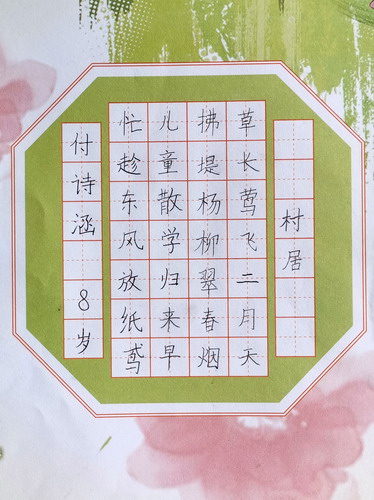 村居
草长莺飞二月天
拂堤杨柳翠春烟
儿童散学归来早
忙趁东风放纸鸢
付诗涵 8岁